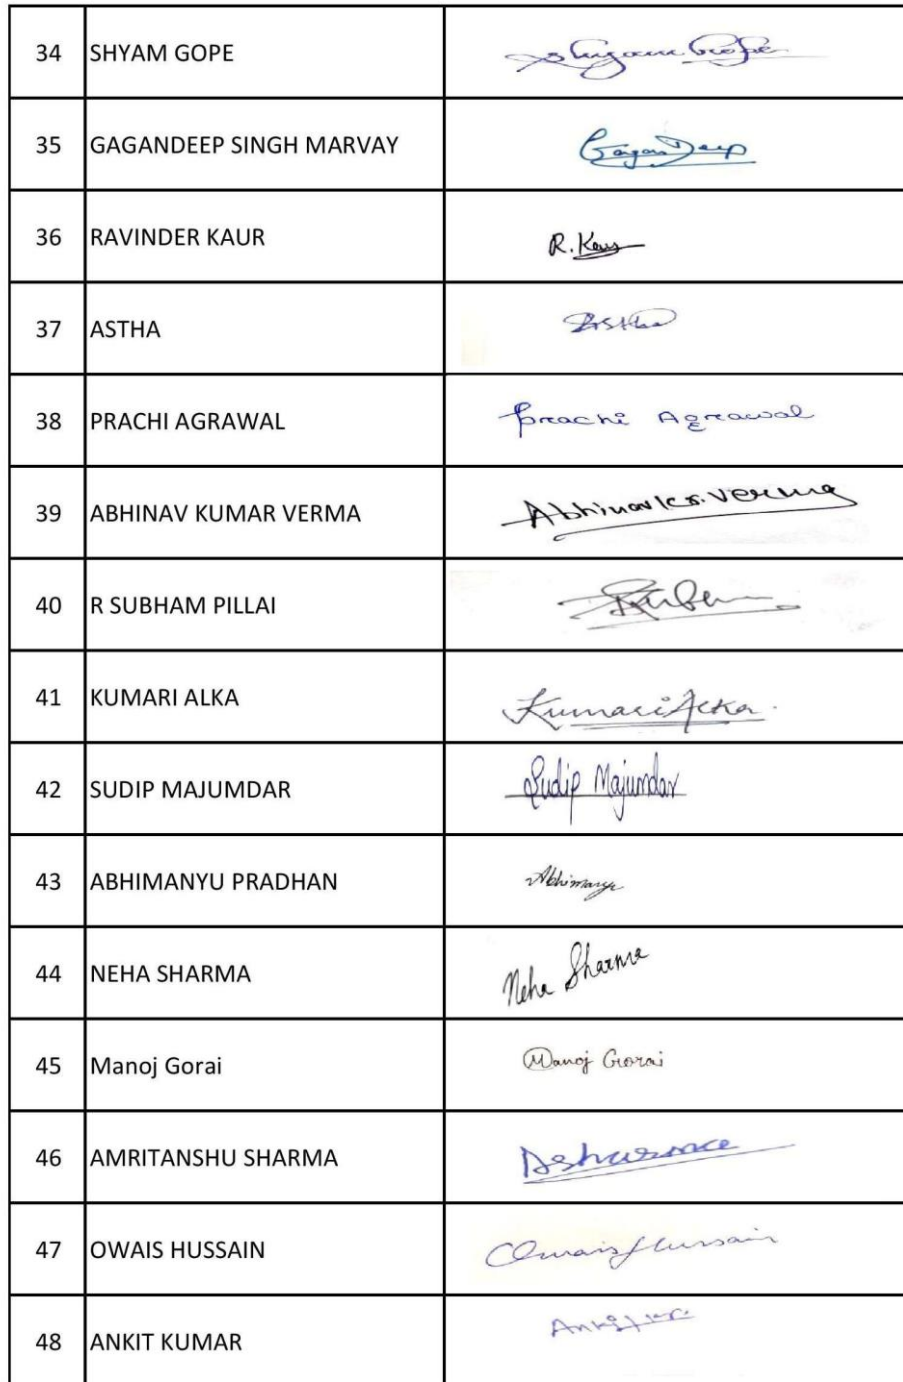 34 SHYAM GOPE Shyam Gope
35 GAGANDEEP SINGH MARVAY GaganDeep
36 RAVINDER KAUR R. Kaur
37 ASTHA Astha
38 PRACHI AGRAWAL Prachi Agrawal
39 ABHINAV KUMAR VERMA Abhinav Kr. Verma
40 R SUBHAM PILLAI
41 KUMARI ALKA Kumari Alka.
42 SUDIP MAJUMDAR Sudip Majumdar
43 ABHIMANYU PRADHAN Abhimanyu
44 NEHA SHARMA Neha Sharma
45 Manoj Gorai Manoj Gorai
46 AMRITANSHU SHARMA Asharma
47 OWAIS HUSSAIN Owais Hussain
48 ANKIT KUMAR